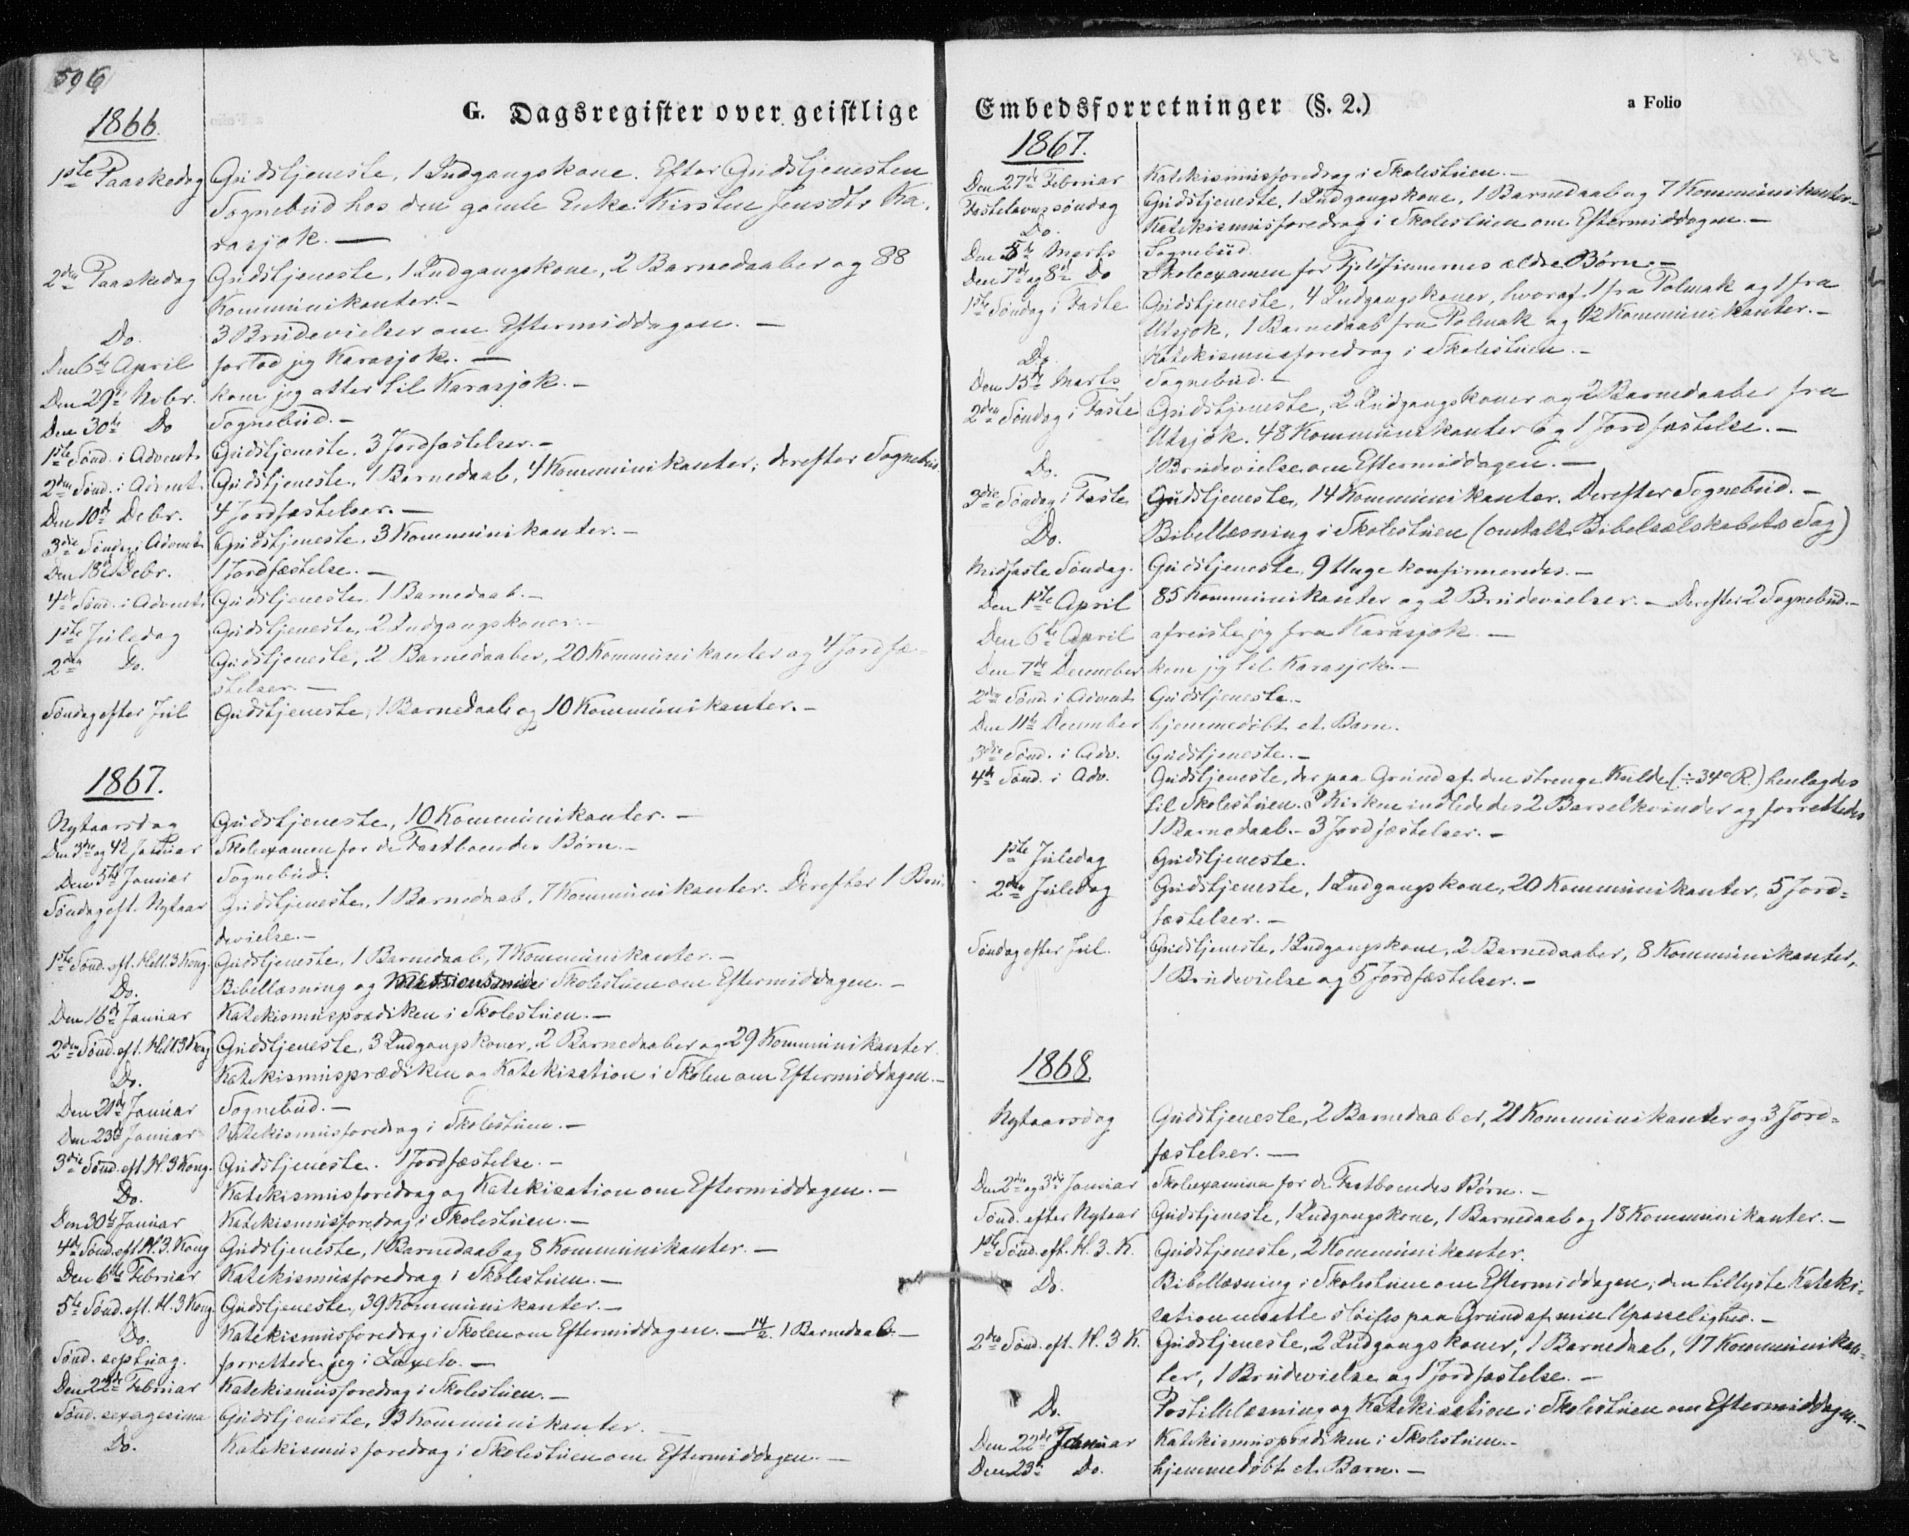 596
G. Dagsregister over geistlige
1866.
1ste Paaskedag Gudstjeneste, 1 Indgangskone. Efter Gudstjenesten
Sognebud hos den gamle Enke Kirsten Jensdtr Ka-
rasjok. —
2den Paaskedag Gudstjeneste, 1 Indgangskone, 2 Barnedaaber og 88
Kommunikanter. —
Do. 3 Brudevielser om Eftermiddagen. —
Den 6te April forlod jeg Karasjok. —
Den 29de Novbr. kom jeg atter til Karasjok. —
Den 30te Do Sognebud. —
1ste Sönd. i Advent. Gudstjeneste. 3 Jordfæstelser. —
2den Sönd. i Advent. Gudstjeneste, 1 Barnedaab, 4 Kommunikanter; derefter Sognebud.
Den 10de Debr. 4 Jordfæstelser. —
3die Söndag i Advent Gudstjeneste. 3 Kommunikanter. —
Den 18de Debr. 1 Jordfæstelse. —
4de Sönd. i Advent. Gudstjeneste. 1 Barnedaab. —
1ste Juledag Gudstjeneste, 2 Indgangskoner. —
2den Do. Gudstjeneste, 2 Barnedaaber, 20 Kommunikanter og 4 Jordfæ-
stelser. —
Söndag efter Jul Gudstjeneste, 1 Barnedaab og 10 Kommunikanter. —
1867.
Nytaarsdag Gudstjeneste, 10 Kommunikanter. —
Den 3die og 4de Januar Skoleexamen for de Fastboendes Börn. —
Den 5te Januar Sognebud.
Söndag eft. Nytaar Gudstjeneste, 1 Barnedaab, 7 Kommunikanter. Derefter 1 Bru-
devielse. —
1ste Sönd. eft. Hell. 3 Kong. Gudstjeneste, 1 Barnedaab, 7 Kommunikanter. —
Do. Bibellæsning og Missionsmöde i Skolestuen om Eftermiddagen. —
Den 16de Januar Katekismusprædiken i Skolestuen. —
2den Sönd. eft. Hell 3 Kong Gudstjeneste, 3 Indgangskoner, 2 Barnedaaber og 29 Kommunikanter.
Do. Katekismusprædiken og Katekisation i Skolen om Eftermiddagen. —
Den 21de Januar Sognebud. —
Den 23de Januar Katekismusforedrag i Skolestuen. —
3die Sönd. eft H. 3 Kong. Gudstjeneste. 1 Jordfæstelse. —
Do. Katekismusforedrag og Katekisation om Eftermiddagen. —
Den 30te Januar Katekismusforedrag i Skolestuen. —
4de Sönd. eft H. 3. Kong Gudstjeneste, 1 Barnedaab og 8 Kommunikanter. —
Den 6te Februar Katekismusforedrag i Skolestuen. —
5te Sönd. eft. H. 3 Kong Gudstjeneste, 39 Kommunikanter. —
Do. Katekismusforedrag i Skolen om Eftermiddagen. — 14/2. 1 Barnedaab. —
Sönd. septuag. forrettede jeg i Laxelv. —
Den 22de Februar Katekismusforedrag i Skolestuen. —
Sönd. sexagesima Gudstjeneste, 13 Kommunikanter. —
Do. Katekismusforedrag i Skolestuen om Eftermiddagen. —
Embedsforretninger (§. 2.)
a Folio
1867.
Den 27de Februar Katekismusforedrag i Skolestuen. —
Fastelavnssöndag Gudstjeneste, 1 Indgangskone, 1 Barnedaab og 7 Kommunikanter. —
Do. Katekismusforedrag i Skolestuen om Eftermiddagen. —
Den 5te Marts Sognebud
Den 7de og 8de Do Skoleexamen for Fjeldfinnernes ældre Börn. —
1ste Söndag i Faste Gudstjeneste, 4 Indgangskoner, hvoraf 1 fra Polmak og 1 fra
Utsjok, 1 Barnedaab fra Polmak og 12 Kommunikanter. —
Do. Katekismusforedrag i Skolestuen. —
Den 15de Marts Sognebud. —
2den Söndag i Faste Gudstjeneste, 2 Indgangskoner og 2 Barnedaaber fra
Utsjok. 48 Kommunikanter og 1 Jordfæstelse. —
Do. 1 Brudevielse om Eftermiddagen. —
3die Söndag i Faste Gudstjeneste, 14 Kommunikanter. Derefter Sognebud. —
Do. Bibellæsning i Skolestuen (omtalt Bibelselskabets Sag)
Midfaste Söndag. Gudstjeneste, 9 Unge konfirmeredes. —
Den 1ste April 85 Kommunikanter og 2 Brudevielser. — Derefter 2 Sognebud. —
Den 6te April afreiste jeg fra Karasjok. —
Den 7de December kom jeg til Karasjok. —
2den Sönd. i Advent Gudstjeneste. —
Den 11te December hjemmedöbt et Barn.
3die Sönd. i Adv. Gudstjeneste. —
4de Sönd. i Adv. Gudstjeneste, der paa Grund af den strenge Kulde (÷34° R.) henlagdes
til Skolestuen. I Kirken indlededes 2 Barselkvinder og forrettedes
1 Barnedaab. — 3 Jordfæstelser. —
1ste Juledag Gudstjeneste.
2den Juledag Gudstjeneste, 1 Indgangskone, 20 Kommunikanter, 5 Jord-
fæstelser. —
Söndag efter Jul. Gudstjeneste, 1 Indgangskone, 2 Barnedaaber, 8 Kommunikanter,
1 Brudevielse og 5 Jordfæstelser. —
1868.
Nytaarsdag Gudstjeneste, 2 Barnedaaber, 21 Kommunikanter og 3 Jord-
fæstelser. —
Den 2den og 3die Januar Skoleexamen for de Fastboendes Börn. —
Sönd. efter Nytaar Gudstjeneste, 1 Indgangskone, 1 Barnedaab og 18 Kommunikanter. —
1ste Sönd. eft. H. 3. K. Gudstjeneste, 2 Kommunikanter.
Do. Bibellæsning i Skolestuen om Eftermiddagen; den tillyste Kateki-
sation maatte slöifes paa Grund af min Upasselighed. —
2den Sönd. eft. H. 3 K. Gudstjeneste, 2 Indgangskoner, 1 Barnedaab, 17 Kommunikan-
ter, 1 Brudevielse og 1 Jordfæstelse. —
Do. Postillelæsning og Katekisation i Skolestuen om Eftermiddagen. —
Den 22de Januar Katekismusprædiken i Skolestuen. —
Den 23de Do. hjemmedöbt et Barn. —